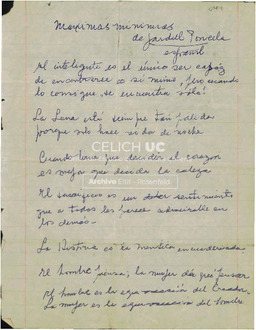 Maximas minimas
de Jardiel Poncela
español
El inteligente es el unico ser capaz
de encontrarse a si mismo, pero cuando
lo consigue, se encuentra solo!
La Luna está siempre tan palida
porque solo hace vida de noche
CELICH UC
Cuando tiene que decidir el corazon
es mejor que decida la cabeza
Archivo Elitt - Rosenfeld
El sacrificio es un sentimiento
que a todos les parece admirable en
los demás.
La Historia es la mentira encuadernada.
El hombre piensa, la mujer da que pensar
El hombre es la equivocación del Creador.
La mujer es la equivocacion del hombre.